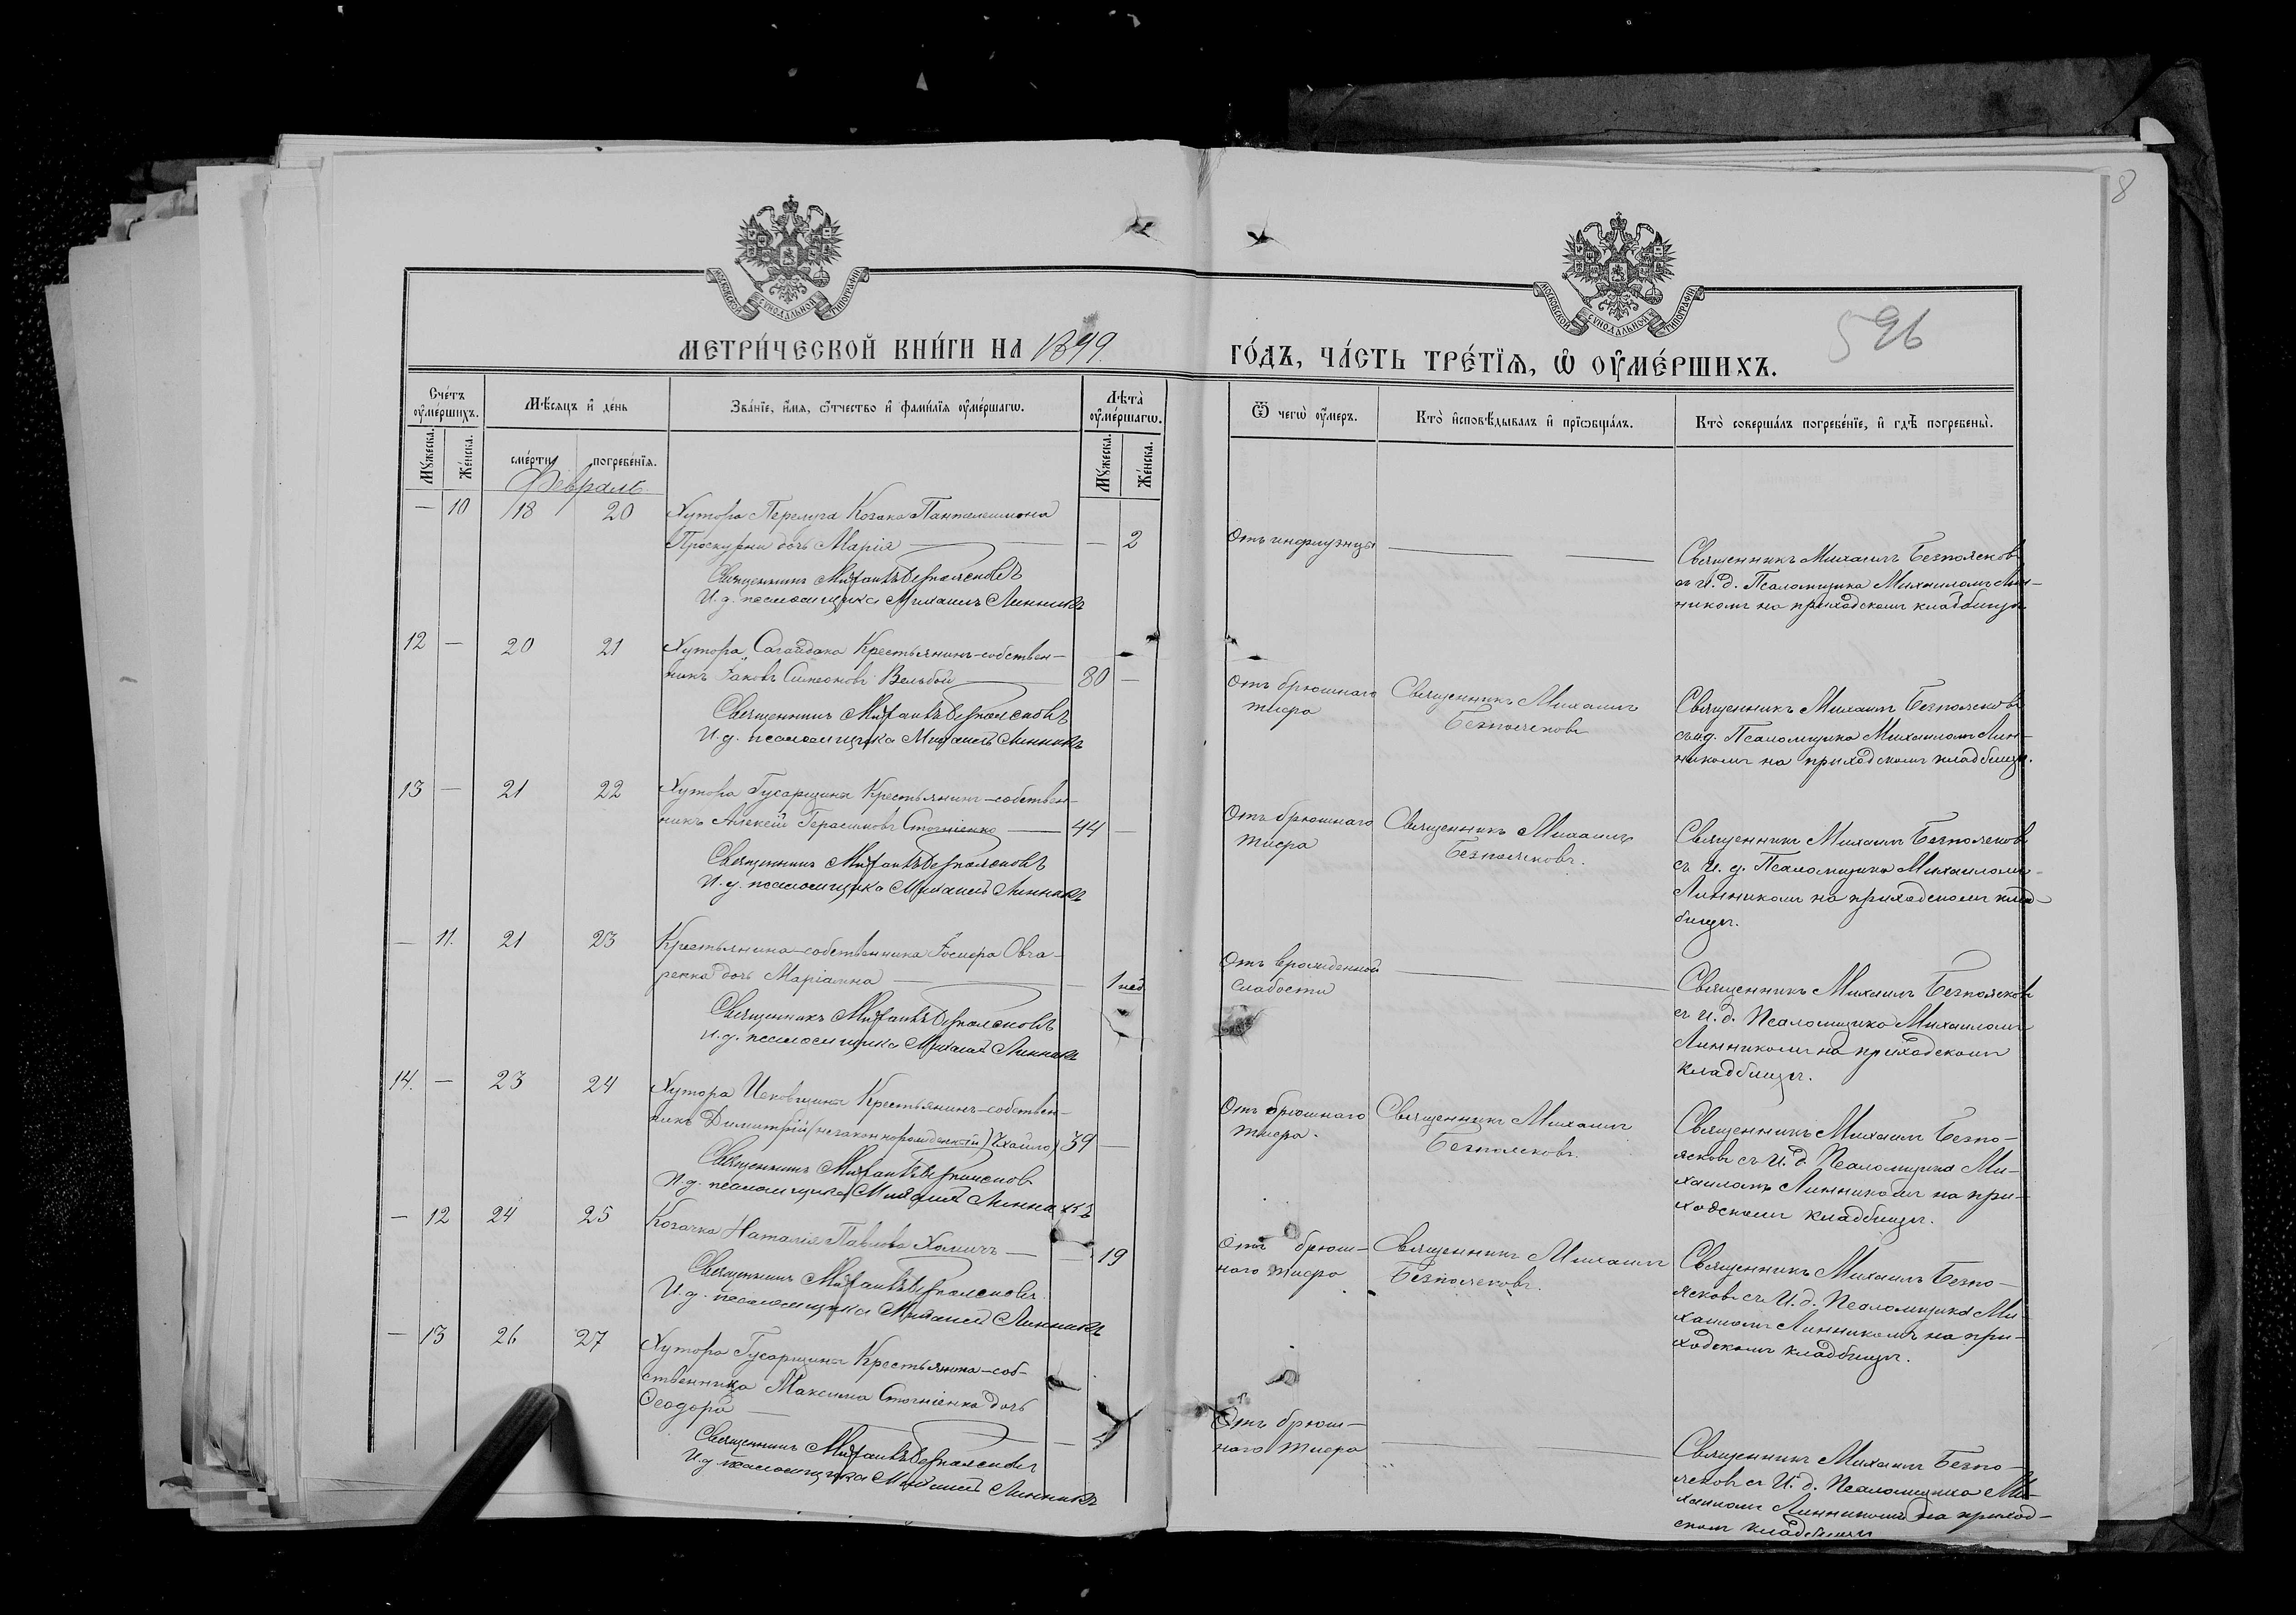 8
МОСКОВСКОЙ СѴНОДАЛЬНОЙ ТИПОГРАФІИ
МОСКОВСКОЙ СѴНОДАЛЬНОЙ ТИПОГРАФІИ
596
МЕТРИ́ЧЕСКОЙ КНИ́ГИ НА 1899.
ГО́ДЪ, ЧА́СТЬ ТРЕ́ТЇѦ, Ѡ҆ ОУ҆МЕ́РШИХЪ.
Сче́тъ оу҆ме́ршихъ.
Мꙋ́жеска.
Же́нска.
Мѣ́сяцъ и҆ де́нь
сме́рти
погребе́нїя.
Зва́нїе, и҆́мя, ѻ҆́тчество и҆ фами́лїя оу҆ме́ршагѡ.
Лѣ́та оу҆ме́ршагѡ.
Мꙋ́жеска.
Же́нска.
Ѿ чегѡ̀ оу҆́меръ.
Кто̀ и҆сповѣ́дывалъ и҆ прїѡбща́лъ.
Кто̀ соверша́лъ погребе́нїе, и҆ гдѣ̀ погребены̀.
Февраль
— 10 18 20 Хутора Перелуга Козака Пантелеимона
Проскурни дочь Марія — — 2
Священникъ Михаилъ Безпоясковъ
И. д. псаломщика Михаилъ Линникъ
Отъ инфлуэнцы — —
Священникъ Михаилъ Безпоясковъ
съ И. д. Псаломщика Михаиломъ Лин-
никомъ на приходскомъ кладбищѣ
12 — 20 21 Хутора Сагайдака Крестьянинъ-собствен-
никъ Іаковъ Симеоновъ Вельбой — 80 —
Священникъ Михаилъ Безпоясковъ
И. д. псаломщика Михаилъ Линникъ
Отъ брюшнаго
тифа
Священникъ Михаилъ
Безпоясковъ
Священникъ Михаилъ Безпоясковъ
съ и д. Псаломщика Михаиломъ Лин-
никомъ на приходскомъ кладбищѣ.
13 — 21 22 Хутора Гусарщина Крестьянинъ-собствен-
никъ Алексій Герасимовъ Стогніенко — 44 —
Священникъ Михаилъ Безпоясковъ
И. д. псаломщика Михаилъ Линникъ
Отъ брюшнаго
тифа
Священникъ Михаилъ
Безпоясковъ.
Священникъ Михаилъ Безпоясковъ
съ И. д. Псаломщика Михаиломъ
Линникомъ на приходскомъ клад-
бищѣ.
— 11. 21 23 Крестьянина-собственника Іосифа Овча-
ренка дочь Маріамна — — 1 нед
Священникъ Михаилъ Безпоясковъ
И. д. псаломщика Михаилъ Линникъ
Отъ врожденной
слабости —
Священникъ Михаилъ Безпоясковъ
съ И. д. Псаломщика Михаиломъ
Линникомъ на приходскомъ
кладбищѣ.
14. — 23 24 Хутора Крестьянинъ-собствен-
никъ Димитрій (незаконнорожденный) 39 —
Священникъ Михаилъ Безпоясковъ
И. д. псаломщика Михаилъ Линникъ
Отъ брюшнаго
тифа.
Священникъ Михаилъ
Безпоясковъ.
Священникъ Михаилъ Безпо-
ясковъ съ И. д. Псаломщика Ми-
хаиломъ Линникомъ на при-
ходскомъ кладбищѣ.
— 12 24 25 Козачка Наталія Павлова Хомичъ — — 19
Священникъ Михаилъ Безпоясковъ.
И. д. псаломщика Михаилъ Линникъ
Отъ брюш-
наго тифа
Священникъ Михаилъ
Безпоясковъ.
Священникъ Михаилъ Безпо-
ясковъ съ И. д. Псаломщика Ми-
хаиломъ Линникомъ на при-
ходскомъ кладбищѣ.
— 13 26 27 Хутора Гусарщина Крестьянина-соб-
ственника Максима Стогніенка дочь
Ѳеодора — —
Священникъ Михаилъ Безпоясковъ
И. д. псаломщика Михаилъ Линникъ
Отъ брюш-
наго тифа —
Священникъ Михаилъ Безпо-
ясковъ съ И. д. Псаломщика Ми-
хаиломъ Линникомъ на приход-
скомъ кладбищѣ